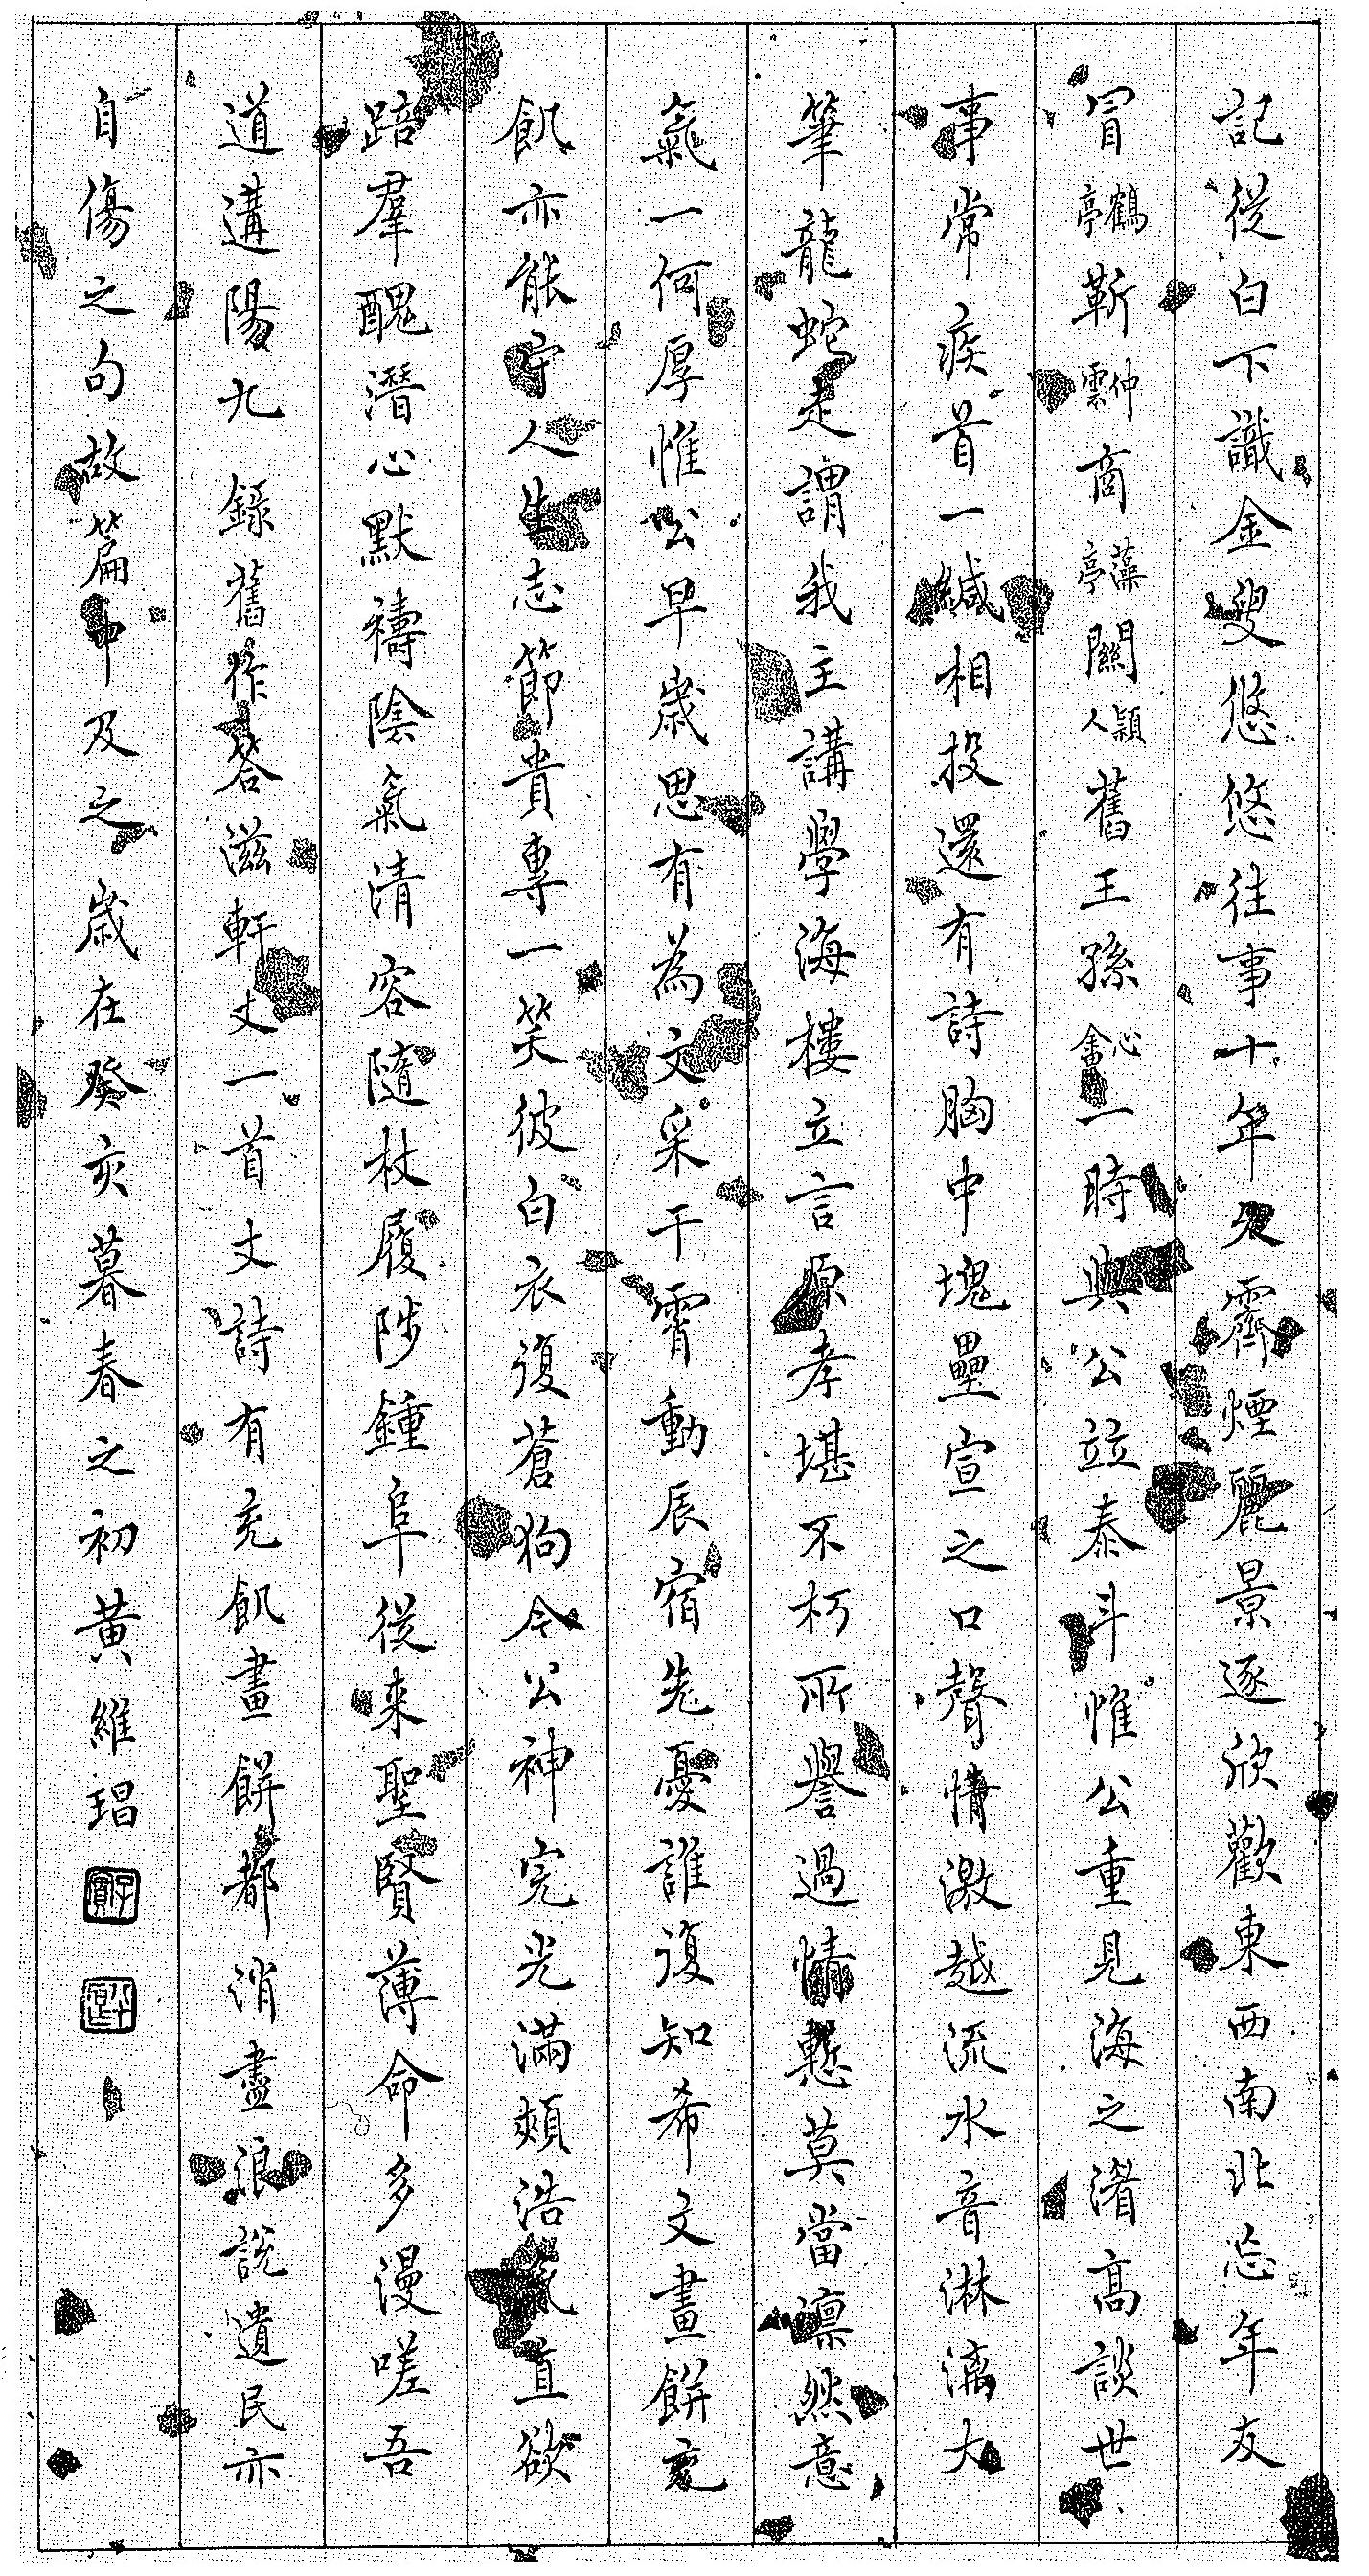 記從白下識金叟悠悠往事十年久霽煙麗景逐欣歡東西南北忘年友
冒鶴亭靳仲雲商藻亭闞穎人舊王孫心畬一時與公竝泰斗惟公重見海之濱高談世
事常疾首一緘相投還有詩胸中塊壘宣之口聲情激越流水音淋漓大
筆龍蛇走謂我主講學海樓立言原孝堪不朽所譽過情慙莫當凛然意
氣一何厚惟公早歲思有為文采干霄動辰宿先憂誰復知希文畫餅充
飢亦能守人生志節貴專一笑彼白衣復蒼狗今公神完光滿頰浩氣直欲
踣羣醜潛心默禱陰氣清容隨杖履陟鍾阜從來聖賢薄命多漫嗟吾
道遘陽九　錄舊作答滋軒丈一首丈詩有充飢畫餅都消盡浪說遺民亦
自傷之句故篇中及之歲在癸亥暮春之初黃維琩